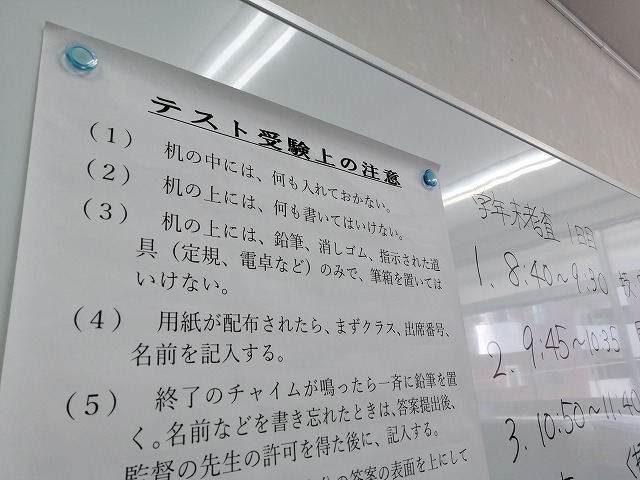 テスト受験上の注意
（１） 机の中には、何も入れておかない。
（２） 机の上には、何も書いてはいけない。
（３） 机の上には、鉛筆、消しゴム、指示された道
具（定規、電卓など）のみで、筆箱を置いては
いけない。
（４） 用紙が配布されたら、まずクラス、出席番号、
名前を記入する。
（５） 終了のチャイムが鳴ったら一斉に鉛筆を置
く。名前などを書き忘れたときは、答案提出後、
監督の先生の許可を得た後に、記入する。
の答案の表面を上にして
学年末考査 1日目
1. 8:40〜9:30
2. 9:45〜10:35
3. 10:50〜11:40